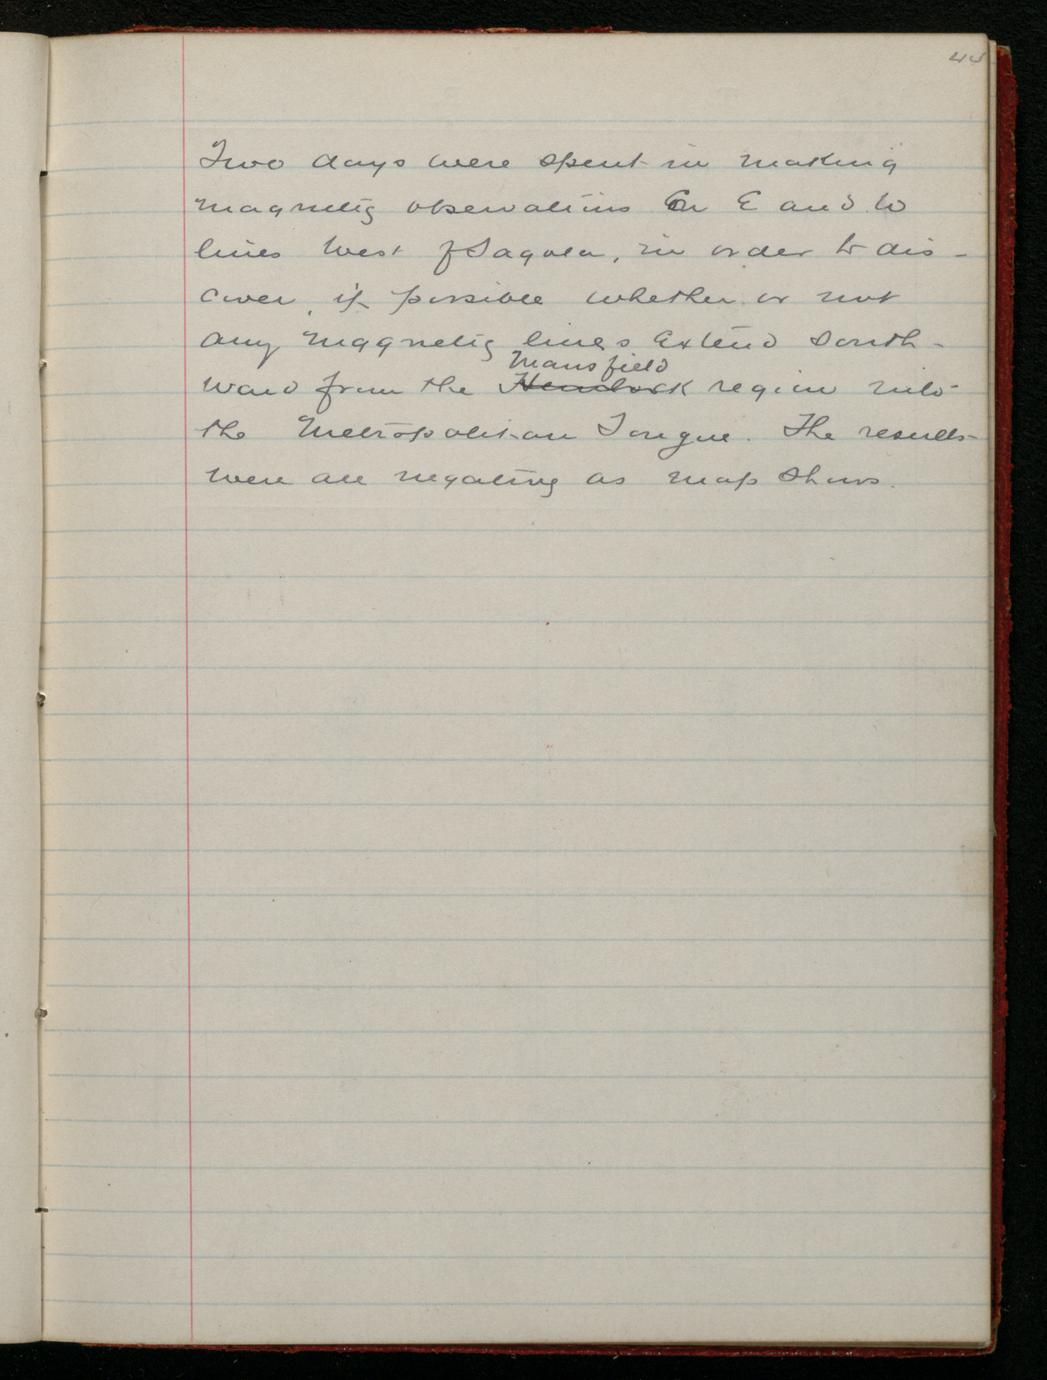 Two days were spent in making
magnetic observations on E and W
lines West of Sagola, in order to dis-
cover, if possible whether or not
any magnetic lines extend South-
Mansfield
ward from the Hemlock region into
the Metropolitan Tongue. The results
were all negative as map shows.